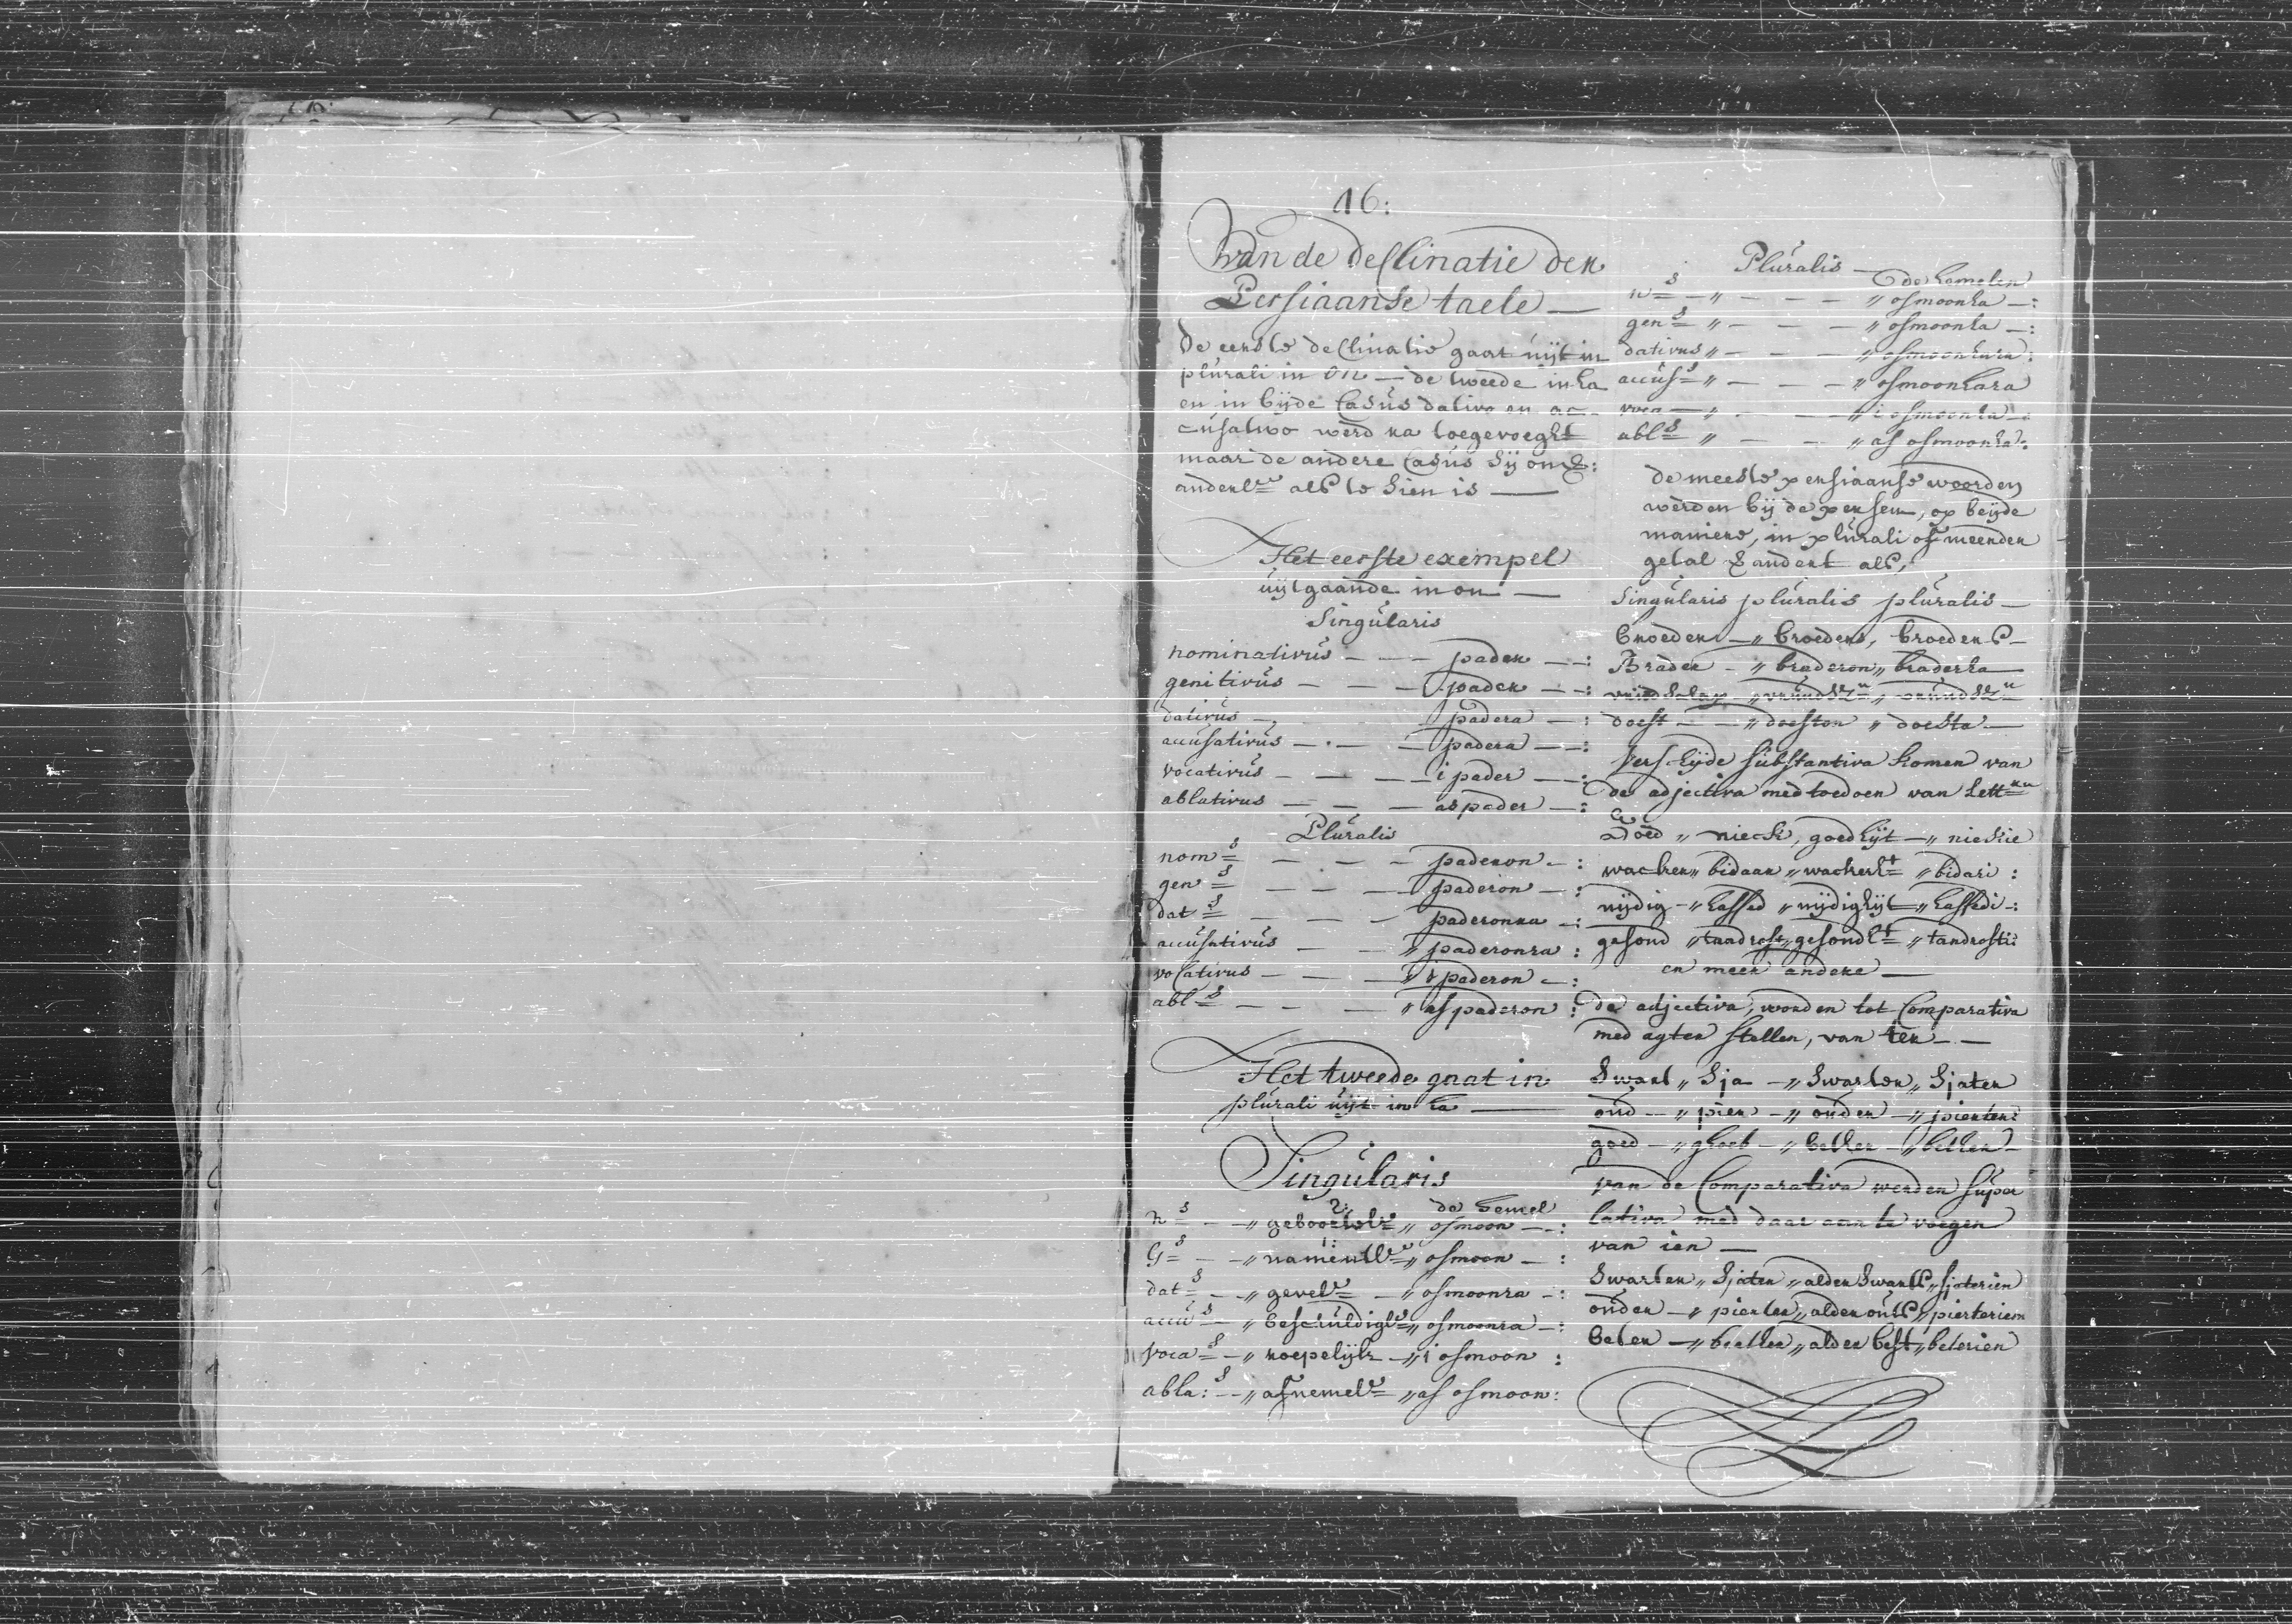 16:
Van de declinatie der
Persiaanse taele —
De eerste declinatie gaat uijt in
plurali in on — de tweede in ha
en in bijde Casus dativo en ac-
cusativo werd ra toegevoeght
maar de andere Casus sij onv:
anderl= als te sien is —
Het eerste exempel
uijtgaande in on —
Singularis
nominativus — — — pader —:
genitivus — — — pader —:
dativus — padera —:
accusativus — — — padera —:
vocativus — — — i pader —:
ablativus — — — as pader —:
Pluralis
nom=s — — — paderon —:
gen=s — — — paderon —:
dat=s — — — paderonra —:
accusativus — — „ paderonra :
vocativus — — — „ i paderon —:
abl=s — — — „ as paderon :
Het tweede gaat in
plurali uijt in ha —
Singularis
de hemel
n=s — „ „ osmoon —:
G=s — „ namentl= „ osmoon —:
dat=s — „ gevel= — „ osmoonra —:
accu=s — „ beschuldigl= „ osmoonra —:
voca=s — „ roepelijk — „ i osmoon :
abla:s — „ afnemel= „ as osmoon:
Pluralis —
de hemelen
n=s — „ — — — „ osmoonha —:
gen=s „ — — — „ osmoonha —:
dativus „ — — — „ osmoonhara :
accus=s „ — — — „ osmoonhara
voca — „ — — „ i osmoonha —:
abl=s „ — — „ as osmoonha :
de meeste persiaanse woorden
werden bij de persen, op beijde
maniere, in plurali of meerder
getal verandert als,
Singularis pluralis pluralis —
broeder — „ broeders, broeders —
Brader — „ braderon „ braderha —
doest — — „ doeston „ doestha —
Verscheijde substantiva komen van
de adjectiva med toedoen van lett=en
Goed „ nieck, goedhijt — „ niekie
wacker „ bidaar „ wackerh=t „ bidari :
nijdig — „ hassed „ nijdighijt „ hassedi —:
gesond „ taadrost „ gesondh=t „ tandrosti:
en meer andere —
de adjectiva, worden tot Comparativa
med agter stellen, van ter — —
Swart „ Sja — „ Swarter „ Sjater
oud — „ pier — „ ouder — „ pierter:
goed — „ ghoeb — „ better — „ better —
van de Comparativa werden super
lativa med daar aan te voegen
van ien —
Swarter „ Sjater „ alder Swarts „ sjaterien
ouder — „ pierter „ alder outs „ pierterien
beter — „ better „ alder best „ beterien